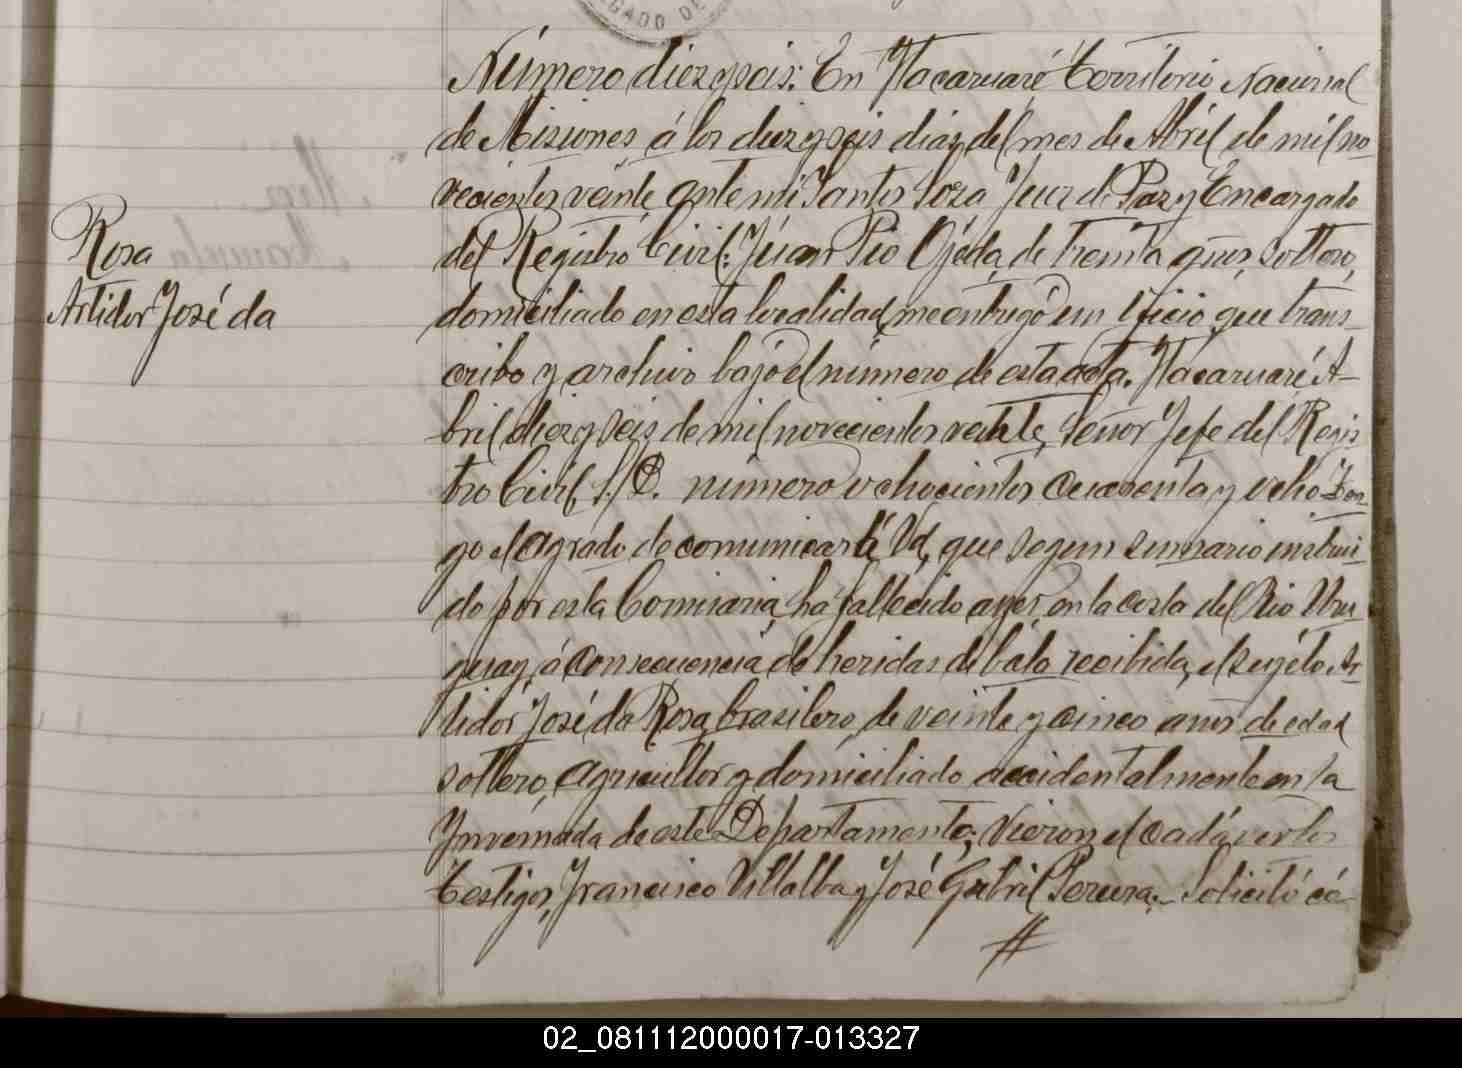 GADO DE
Número diez y seis: En Itacaruaré Territorio Nacional
de Misiones á los diez y seis dias del mes de Abril de mil no-
vecientos veinte, ante mi Santos Sosa Juez de Paz y Encargado
del Registro Civil: Júan Pio Ojéda, de treinta años, soltero,
Rosa
Artidor José da
domiciliado en esta localidad, me entregó un oficio que trans-
cribo y archivo bajo el número de esta acta. Itacaruaré A-
bril diez y seis de mil novecientos veinte, Señor Jefe del Regis
tro Civil, S/D. número ochocientos cuarenta y ocho Ten-
go el agrado de comunicar á Vd, que segun sumario instrui-
do por esta Comisaria, ha fallecido ayer, en la costa del Rio Uru
guay, á consecuencia de heridas de bala recibida, el sugéto Ar
tidor José da Rosa, brasilero, de veinte y cinco años de edad
soltero, agricultor y domiciliado accidentalmente en la
Invernada de este Departamento; Vieron el cadáver los
Testigos, Francisco Villalba y José Gabril Pereira.- Solicitó có-
//
02_081112000017-013327